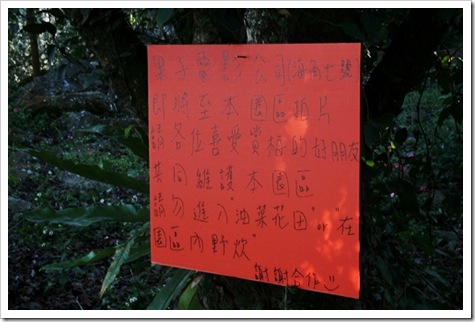 果子電影公司(海角七號)
即將至本園區拍片
請各位喜愛賞梅的好朋友
共同維護本園區
請勿進入"油菜花田"or"在
園區內野炊"
謝謝合作